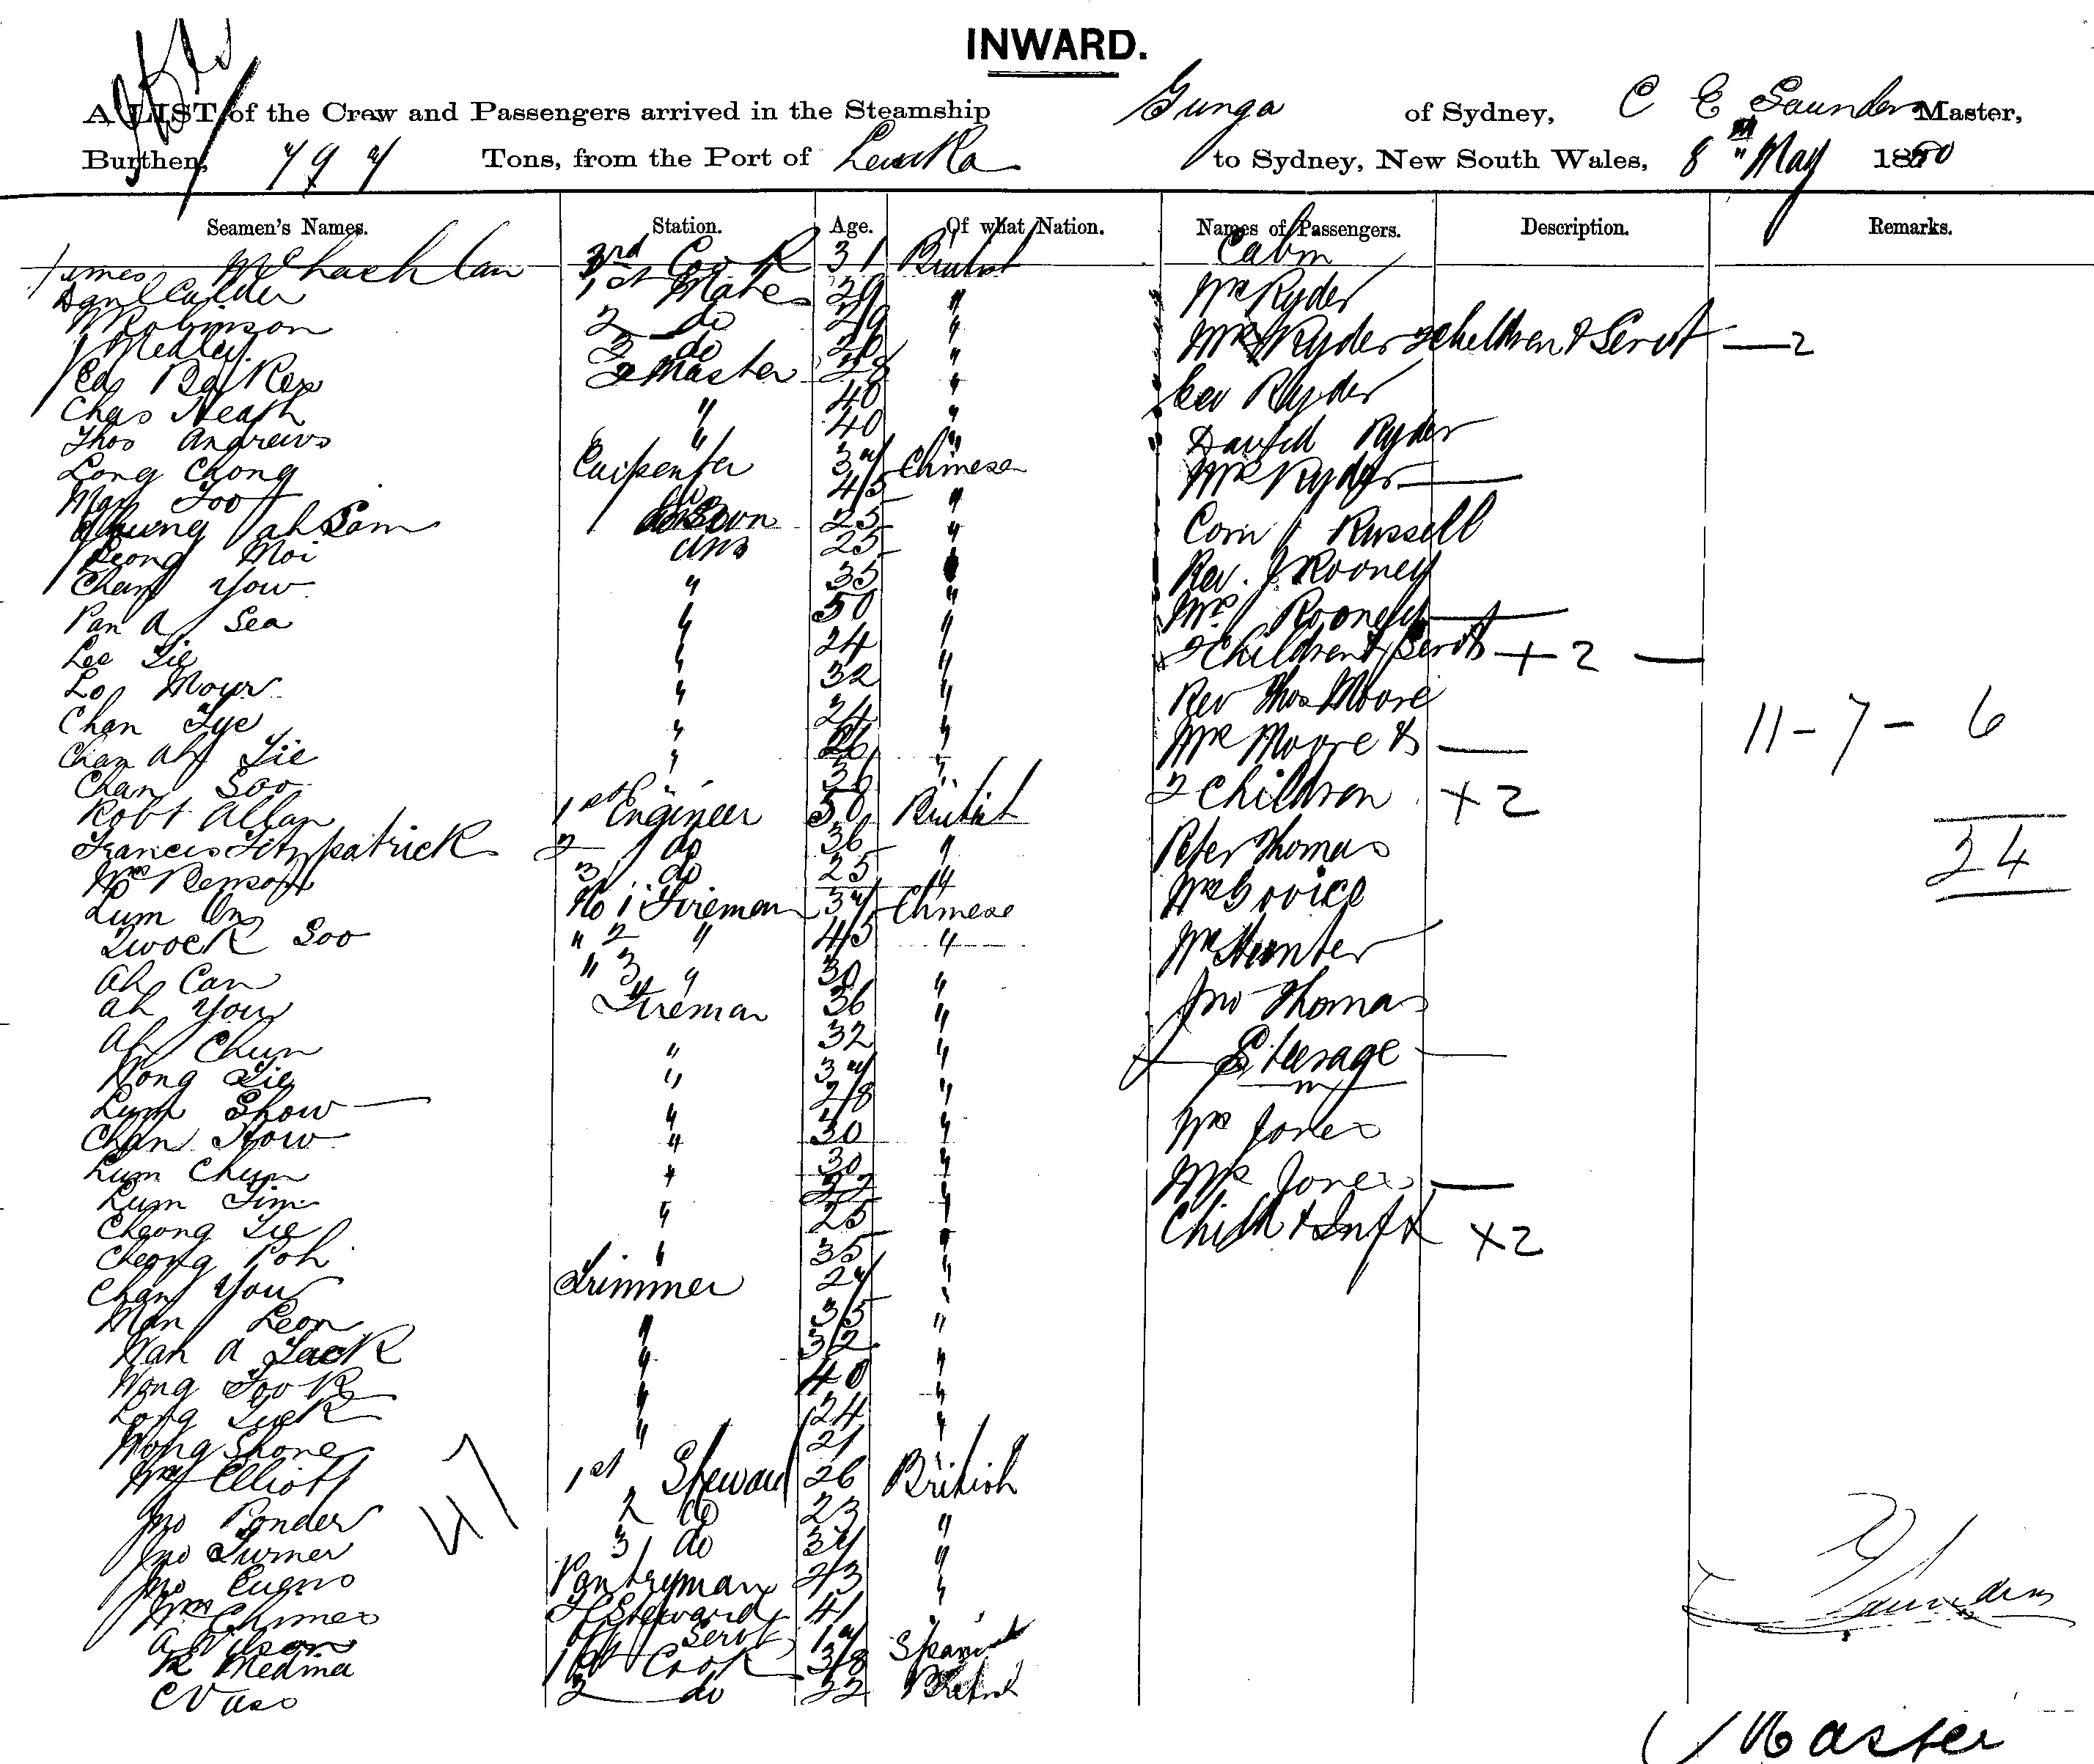 INWARD.
A LIST of the Crew and Passengers arrived in the Steamship Gunga of Sydney, C E Saunders Master,
Burthen, 797 Tons, from the Port of Levuka to Sydney, New South Wales, 8th May 1880
Seamen's Names. Station. Age. Of what Nation. Names of Passengers. Description. Remarks.
James McLachlan 3rd Cook 31 British Cabin
Calder 1st Mate 29 " Mr Ryder
Robinson 2 do 29 " Mrs Ryder 2 Children & Servt — 2
Medley 3 do "
Parker 2 Master 28 " Geo Ryder
Chas Heath " 40 "
Thos Andrews " 40 " Ryder
Long Chong Carpenter 37 Chinese Mr Ryder —
Man Foo 45 "
Chung ah Sam 25 " Russell
Leong Moi 25 " Rev. J Rooney
Chan You " 35 "
Pan A Sea " 50 " Mrs Rooney —
Lee Sie " 24 " 2 Children & Servt + 2 —
Lo Mour " 32 " Rev Thos Moore
Chan Tye " 24 " 11 - 7 - 6
Chan Ah Sie " 26 " Mrs Moore & —
Chan Soo " " 2 Children + 2
Robt Allan 1st Engineer 50 British
Francis Fitzpatrick 2 do 36 " Peter Thomas 24
Wm Benson 3 do 25 "
Lum On No 1 Fireman 37 Chinese Mr
Quock Soo " 2 " 45 " Mr Hunter
Ah Can " 3 " 30 "
Ah You Fireman 36 " Jno Thomas
Ah Chun " 32 " Steerage
Wong Sie " 37 "
Lum Show " 28 " Mr Jones
Chan How " 30 "
Lum Chun " 30 " Mrs Jones —
Lum Tim "
Cheong Sie " 25 " Child & Inft + 2
Cheong Poh " 35 "
Chan You Trimmer 27 "
Man Leon " 35 "
Wah A Jack " 32 "
Wong Fook " 40 "
Long Luck " 24 "
Wong Shone " 21 "
47
Wm Elliott 1st Steward 26 British
Jno Ponder 2 do 23 "
Jno Turner 3 do 37 "
Jno Pantryman 23 "
Wm Steward 41 "
A Wilson Servt 17
R Medina 1st Cook 38 Spanish
2 do 22 British
Saunders
Master